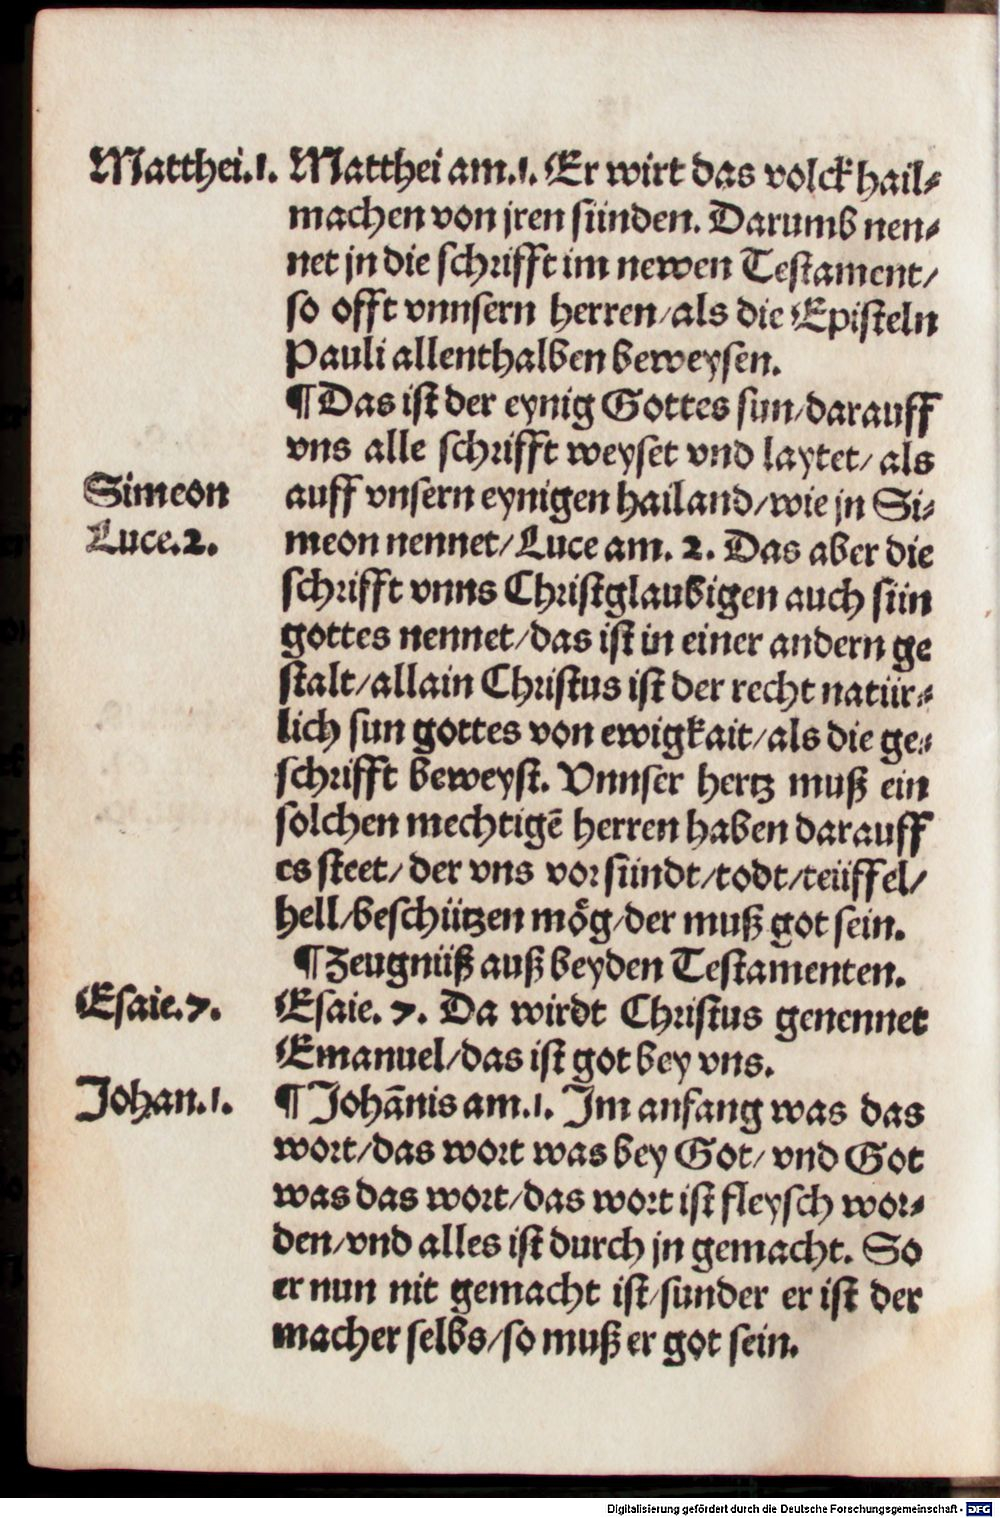 Matthei.1. Matthei am.1. Er wirt das volck hail⸗
machen von jren sünden. Darumb nen⸗
net jn die schrifft im newen Testament/
so offt vnnsern herren/als die Episteln
Pauli allenthalben beweysen.
¶Das ist der eynig Gottes sun/darauff
vns alle schrifft weyset vnd laytet/ als
Simeon auff vnsern eynigen hailand/wie jn Si⸗
Luce.2. meon nennet/Luce am. 2. Das aber die
schrifft vnns Christglaubigen auch sün
gottes nennet/das ist in einer andern ge
stalt/allain Christus ist der recht natür⸗
lich sun gottes von ewigkait/als die ge⸗
schrifft beweyst. Vnnser hertz muß ein
solchen mechtigē herren haben darauff
es steet/ der vns vor sündt/todt/teüffel/
hell/beschützen mög/der muß got sein.
¶Zeugnüß auß beyden Testamenten.
Esaie.7. Esaie. 7. Da wirdt Christus genennet
Emanuel/das ist got bey vns.
Johan.1. ¶Johānis am.1. Im anfang was das
wort/das wort was bey Got/ vnd Got
was das wort/das wort ist fleysch wor⸗
den/vnd alles ist durch jn gemacht. So
er nun nit gemacht ist/sunder er ist der
macher selbs/so muß er got sein.
Digitalisierung gefördert durch die Deutsche Forschungsgemeinschaft - DFG